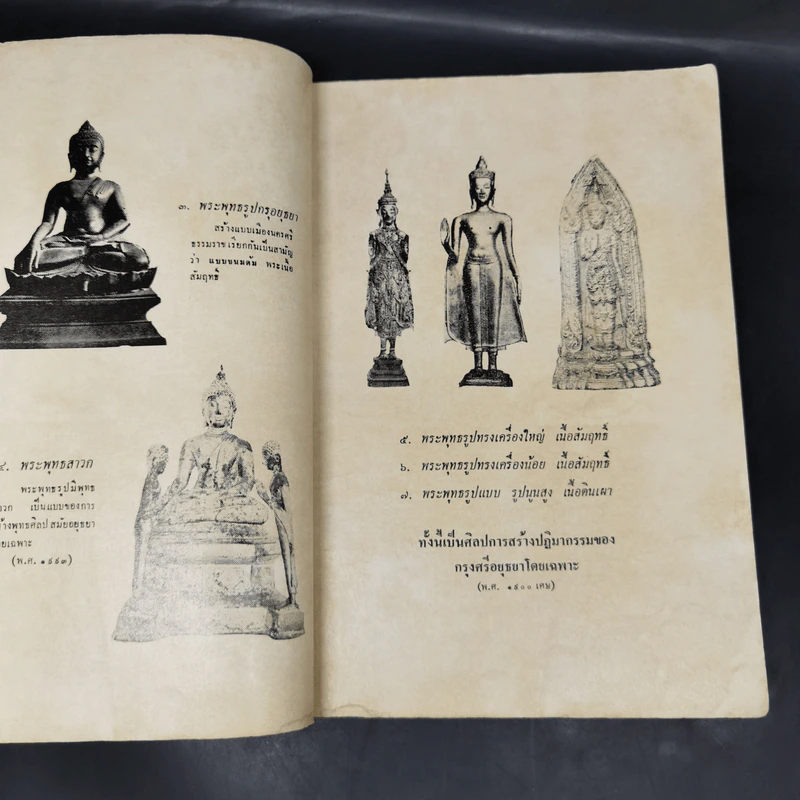 ๓. พระพุทธรูปกรุอยุธยา
สร้างแบบเมืองนครศรี
ธรรมราช เรียกกันเป็นสามัญ
ว่า แบบขนมต้ม พระเนื้อ
สัมฤทธิ์
๔. พระพุทธสาวก
พระพุทธรูปมีพุทธ
สาวก เป็นแบบของการ
สร้างพุทธศิลปสมัยอยุธยา
โดยเฉพาะ
(พ.ศ. ๑๙๙๓)
๕. พระพุทธรูปทรงเครื่องใหญ่ เนื้อสัมฤทธิ์
๖. พระพุทธรูปทรงเครื่องน้อย เนื้อสัมฤทธิ์
๗. พระพุทธรูปแบบ รูปนูนสูง เนื้อดินเผา
ทั้งนี้เป็นศิลปการสร้างปฏิมากรรมของ
กรุงศรีอยุธยาโดยเฉพาะ
(พ.ศ. ๑๙๐๐ เศษ)